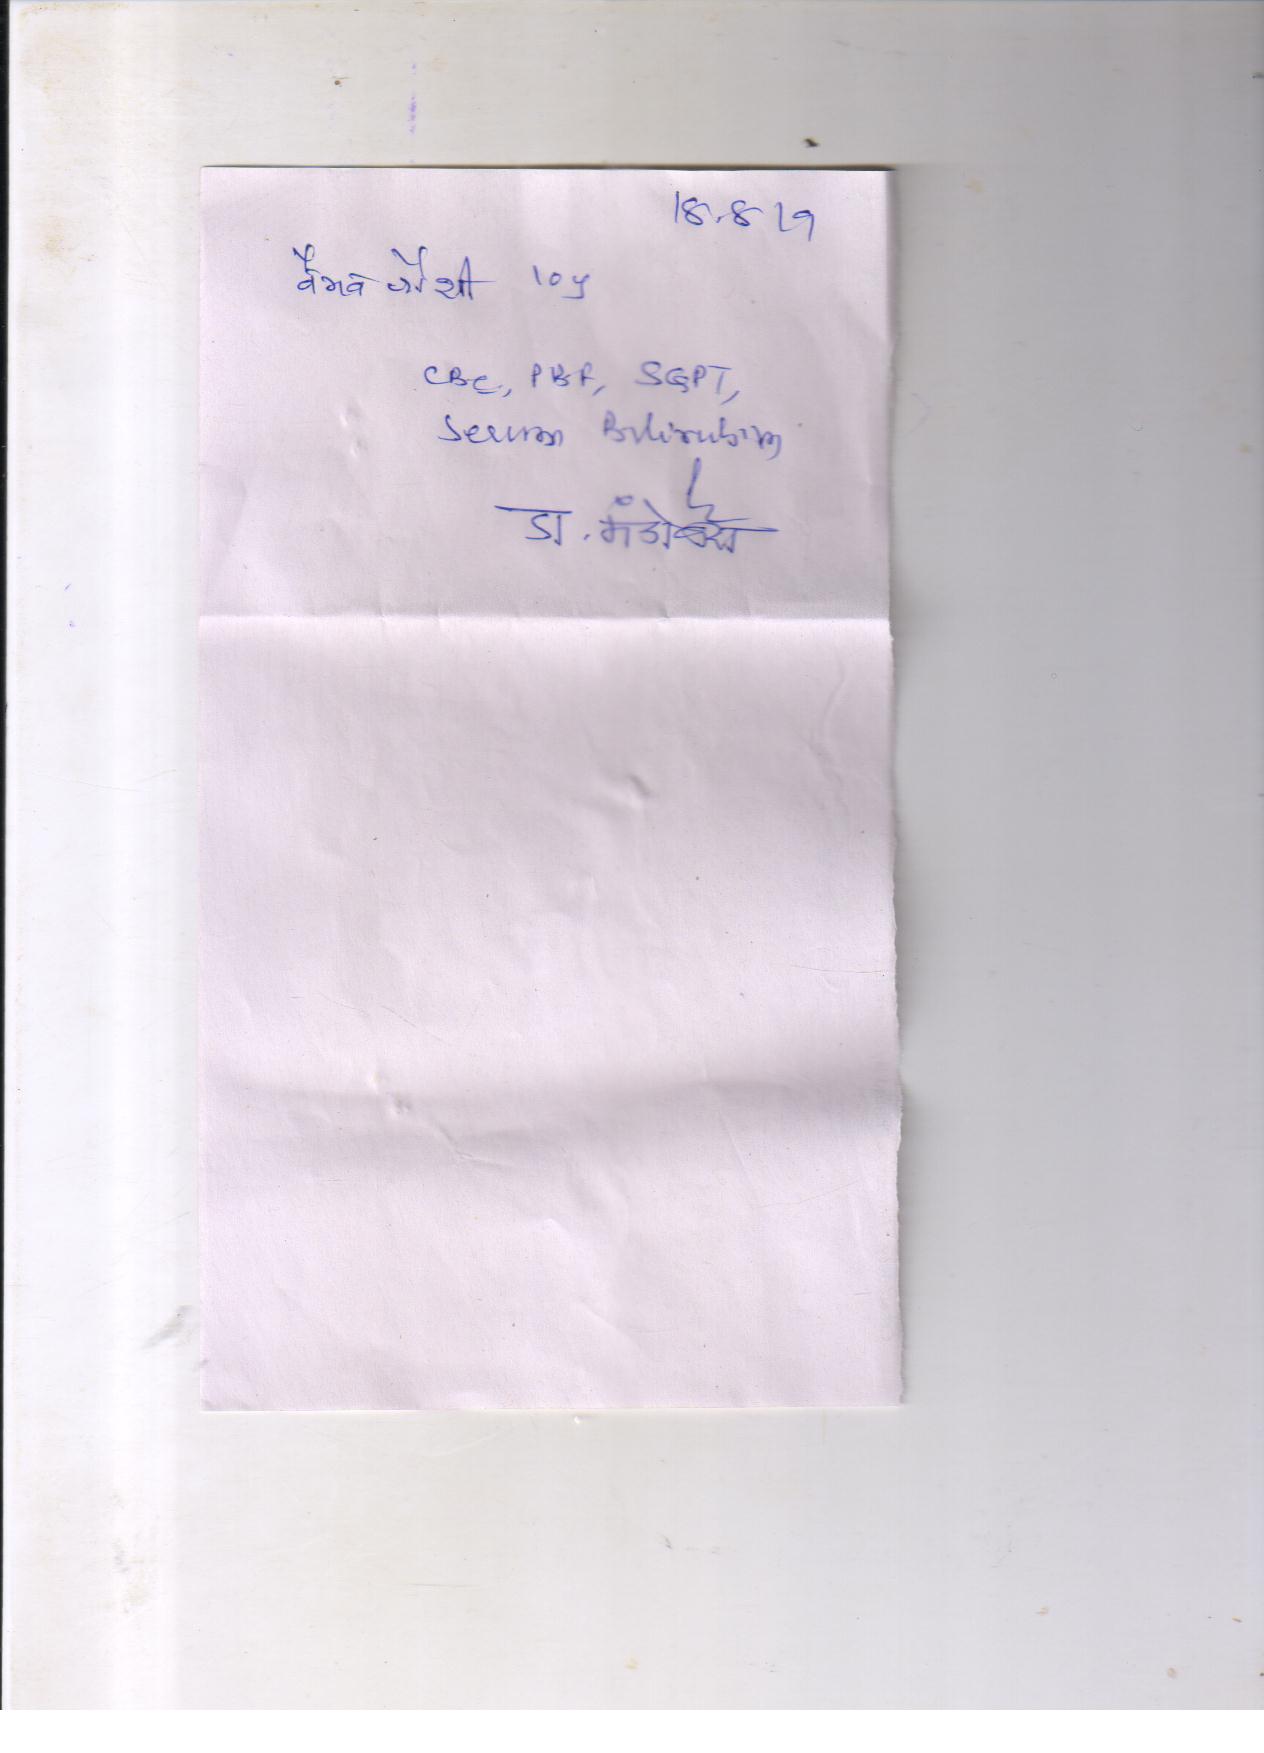 18.8.19
वैभव जोशी 10y
CBC, PBF, SGPT,
Serum Bilirubin
डा.